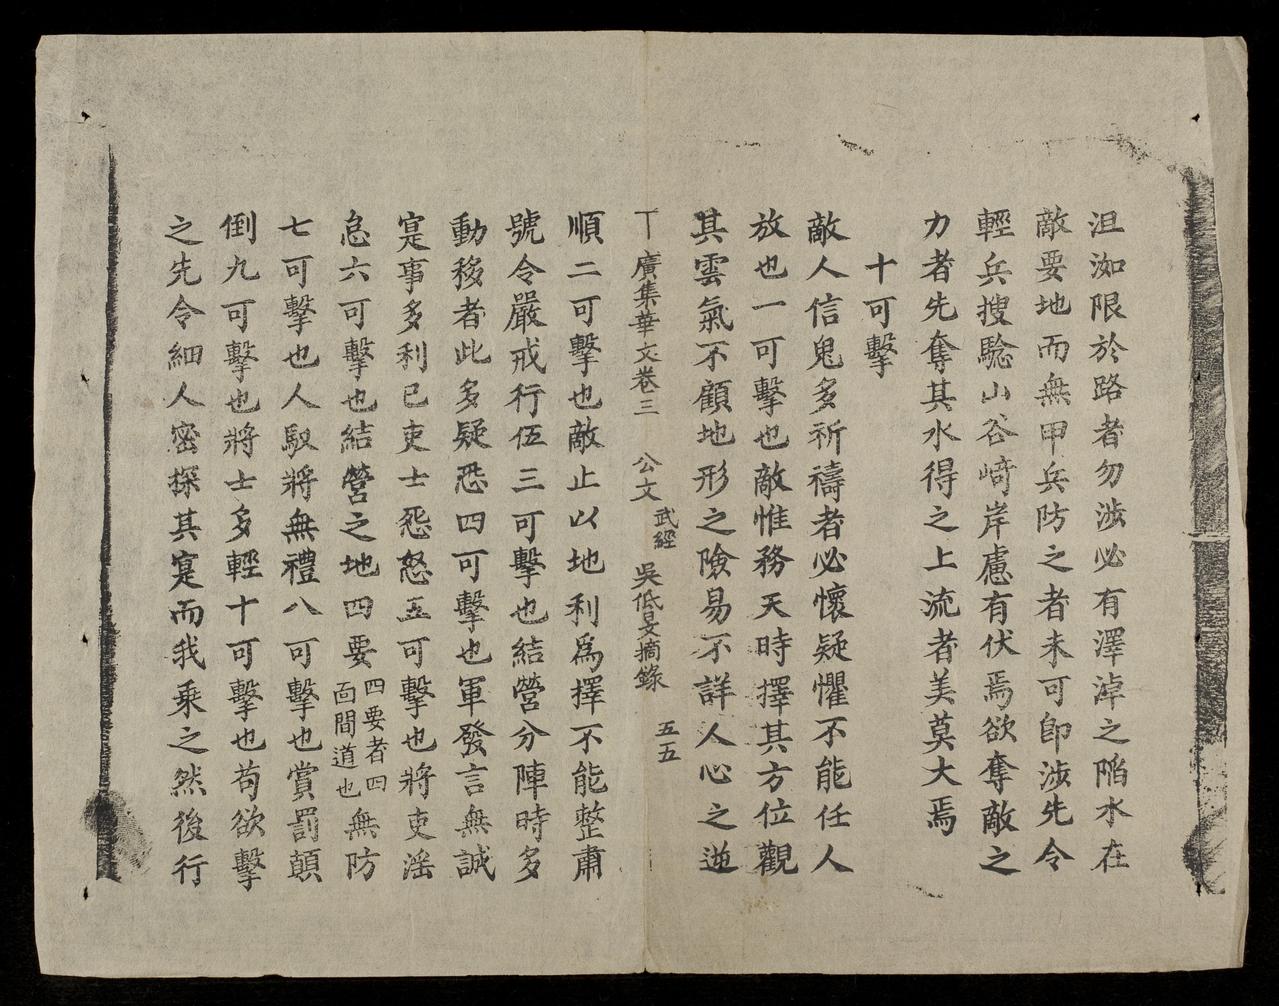 沮洳限於路者勿涉必有澤淖之陷水在
敵要地而無甲兵防之者未可卽涉先令
輕兵搜騐山谷﨑岸慮有伏焉欲奪敵之
力者先奪其水得之上流者美莫大焉
十可擊
敵人信鬼多祈禱者必懷疑懼不能任人
放也一可擊也敵惟務天時擇其方位觀
其雲氣不顧地形之險易不詳人心之逆
丅廣集華文卷三 公文 武經 吳低旻摘錄 五五
順二可擊也敵止以地利爲擇不能整肅
號令嚴戒行伍三可擊也結營分陣時多
動移者此多疑恐四可擊也軍發言無誠
寔事多利已吏士怨怒五可擊也將吏滛
怠六可擊也結營之地四要四要者四面間道也無防
七可擊也人馭將無禮八可擊也賞罰顛
倒九可擊也將士多輕十可擊也苟欲擊
之先令細人密探其寔而我乘之然後行